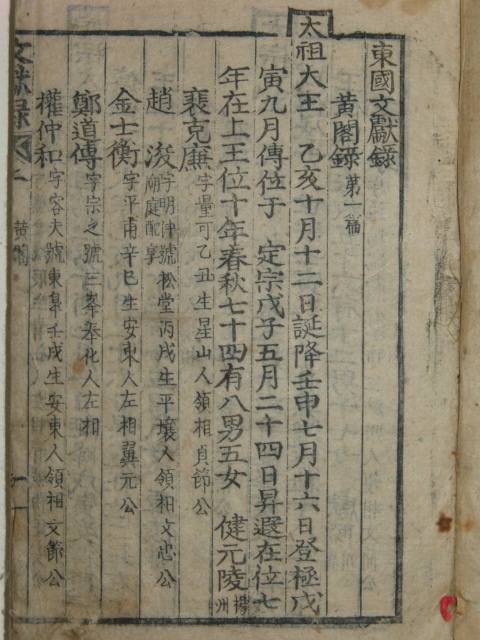 東國文獻錄
黃閣錄 第一篇
太祖大王 乙亥十月十二日誕降壬申七月十六日登極戊
寅九月傳位于 定宗戊子五月二十四日昇遐在位七
年在上王位十年春秋七十四有八男五女 健元陵 楊州
裵克廉 字量可乙丑生星山人領相貞節公
趙浚 字明仲號松堂丙戌生平壤人領相文忠公 廟庭配享
金士衡 字平甫辛巳生安東人左相翼元公
鄭道傳 字宗之號三峯奉化人左相
權仲和 字容夫號東皐壬戌生安東人領相文節公
文獻錄 黃閣 一